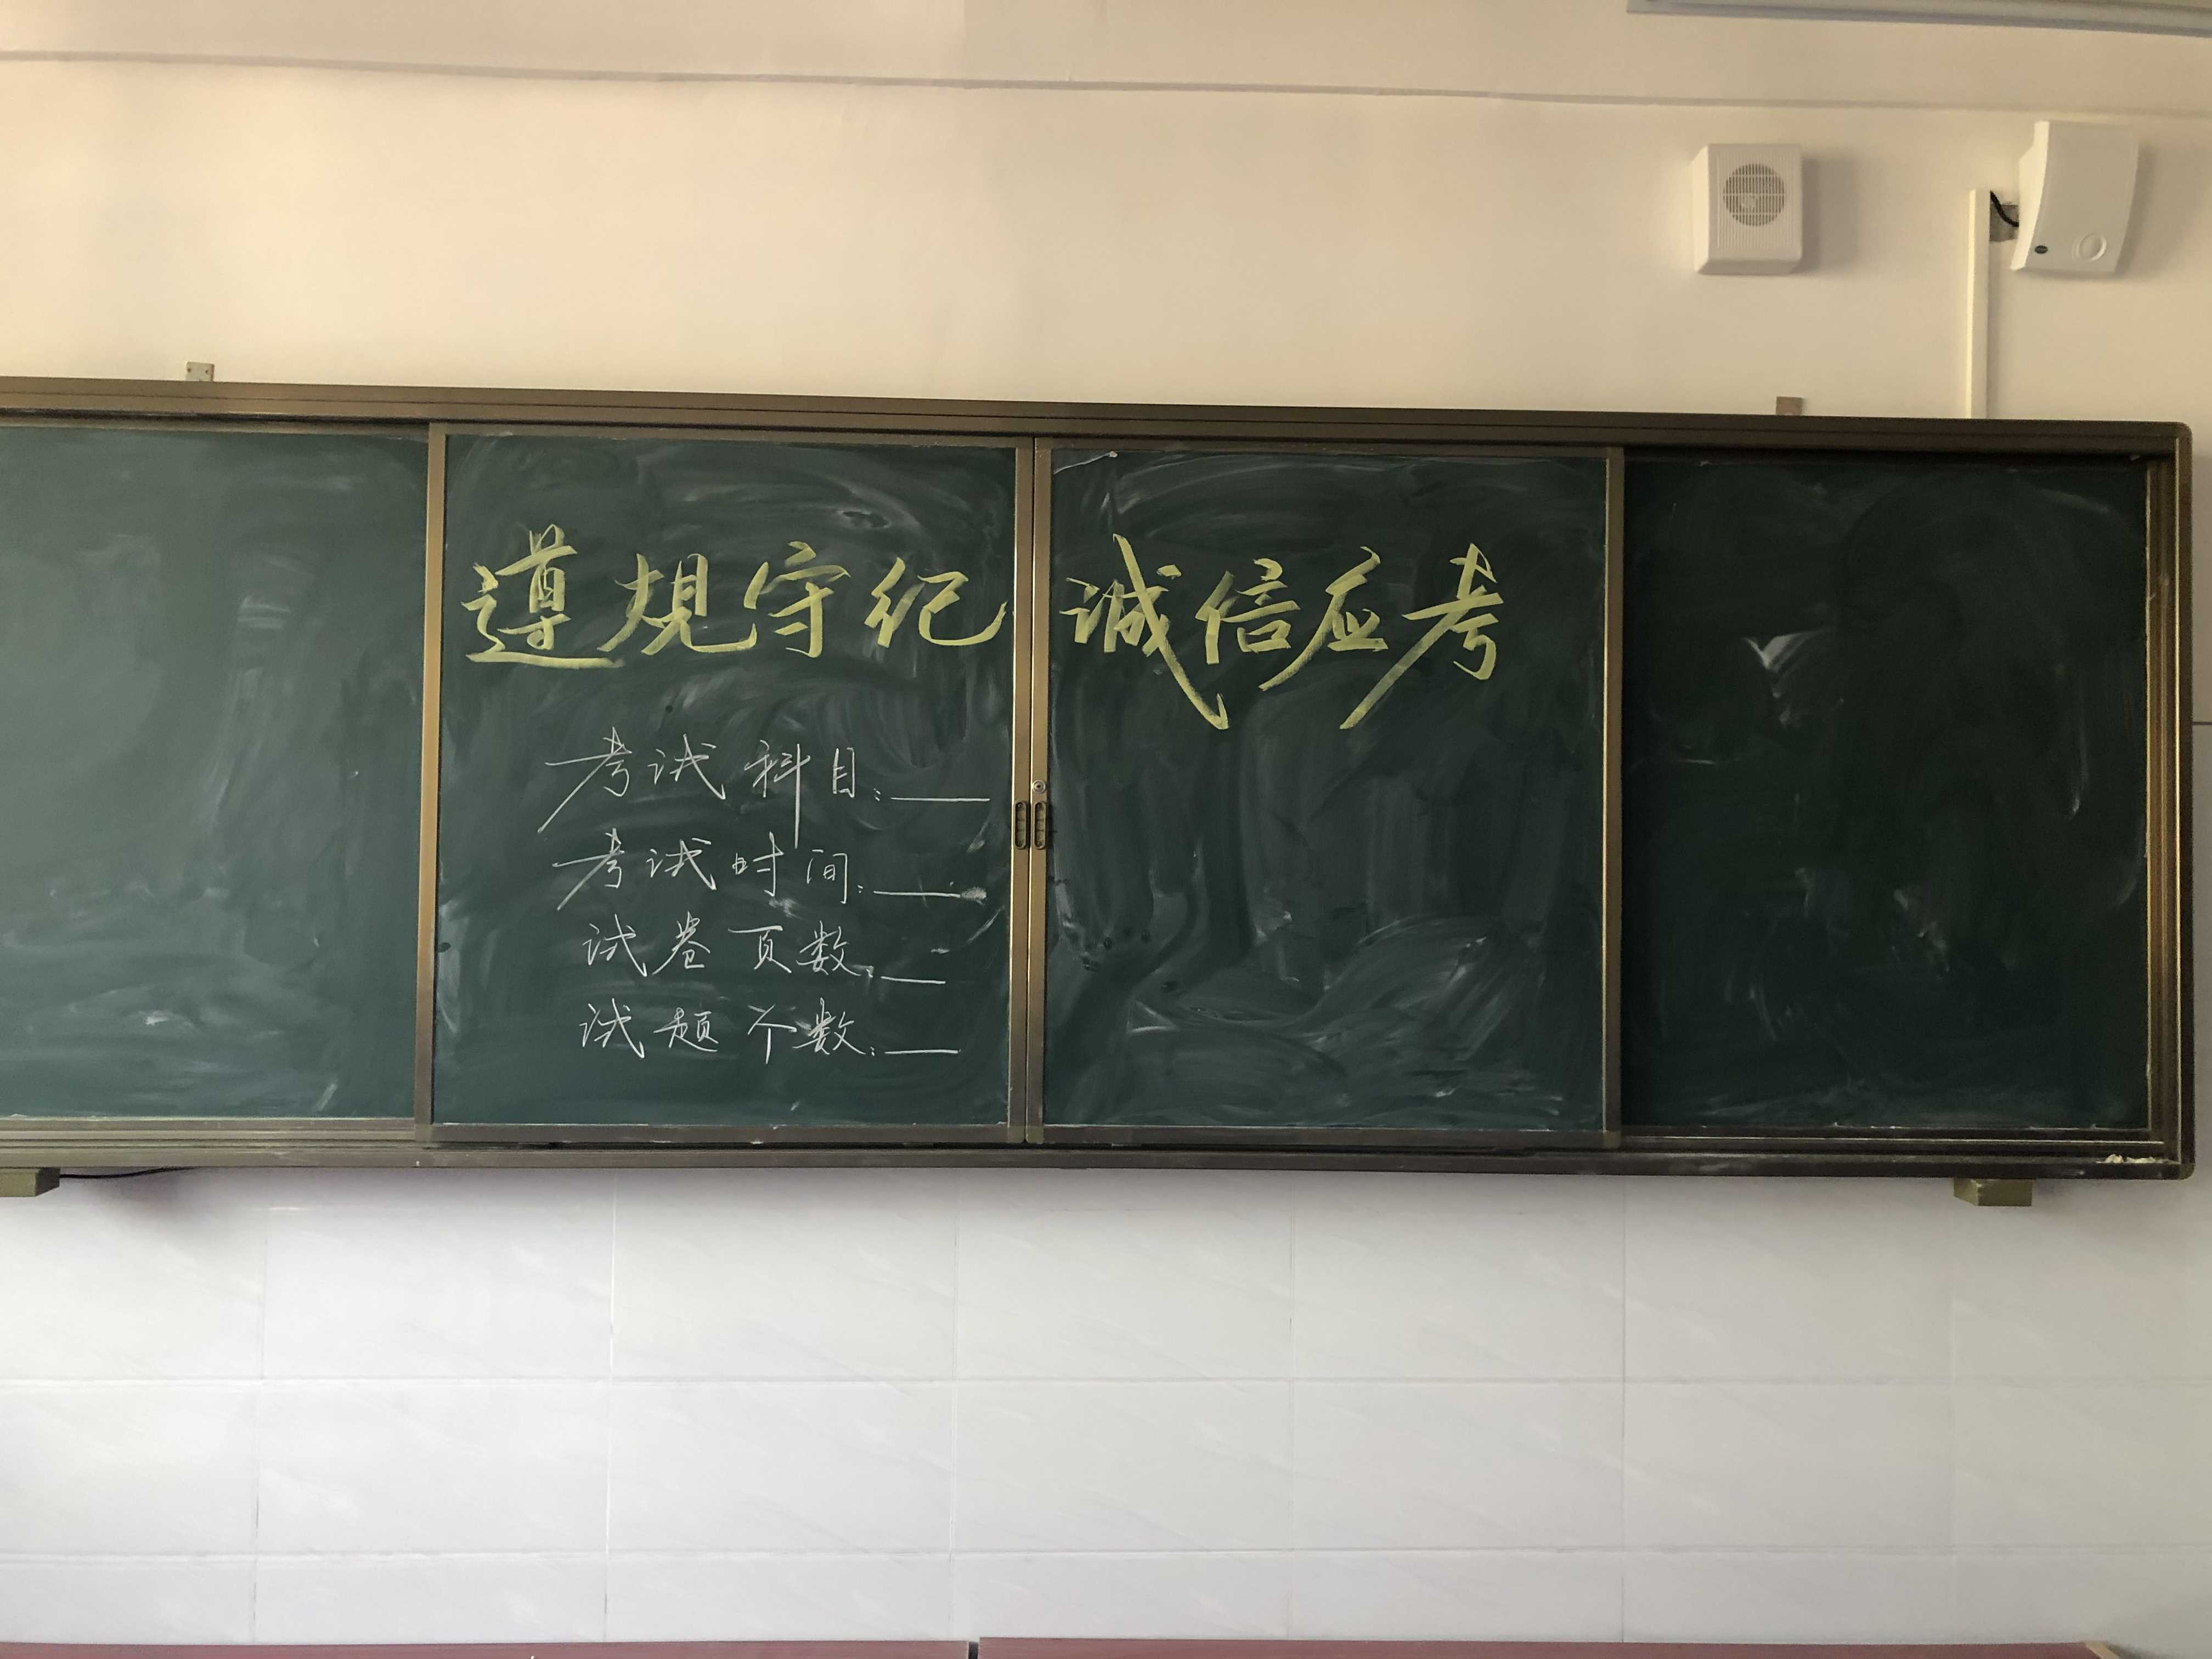 遵规守纪 诚信应考
考试科目:____
考试时间:____
试卷页数:____
试题个数:____